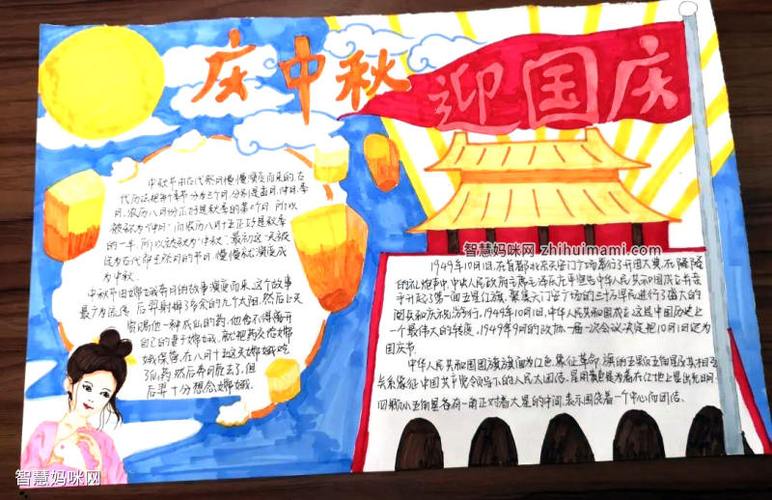 庆中秋
迎国庆
智慧妈咪网 zhihuimami.com
中秋节由古代祭月慢慢演变而来的,在
为中秋。
中秋节由嫦娥奔月的故事演变而来,这个故事
最为流传 后羿射掷了多余的九个太阳,然后上天
资赐他一种成仙的药,他舍不得离开
自己的妻子嫦娥,就把药交给嫦
娥保管,在八月十五这天嫦娥吃
了仙药然后奔月成去了,但
后羿十分想念嫦娥.
1949年10月1日,在首都北京天安门广场举行了开国大典,在隆隆
的礼炮声中,中央人民政府主席毛泽东庄严宣告中华人民共和国成立并亲
手升起了第一面五星红旗。聚集天门安广场的三十万军民进行了盛大的
阅兵和庆祝游行,1949年10月1日,中华人民共和国成立,这是中国历史上
一个最伟大的转变,1949年9月的政协一届一次会议决定把10月1日定为
国庆节.
中华人民共和国国旗旗面为红色,象征革命,旗的五颗五角星及其相互
关系象征中国共产党领导下的人民大团结,星用黄色是为着在红地上显出光明,
四颗小五角星各有一角正对着大星的中间,表示围绕着一个中心而团结。
智慧妈咪网